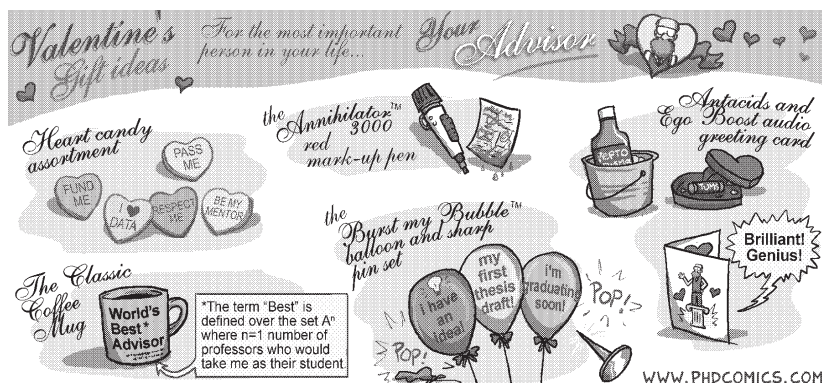 Valentine's
Gift ideas
For the most important
person in your life...
Your
Advisor
Heart candy
assortment
PASS
ME
FUND
ME
I ♥
DATA
RESPECT
ME
BE MY
MENTOR
the
Annihilator™
3000
red
mark-up pen
Antacids and
Ego Boost audio
greeting card
PEPTO
TUMS
The Classic
Coffee
Mug
World's
Best*
Advisor
*The term "Best" is
defined over the set Aⁿ
where n=1 number of
professors who would
take me as their student.
the
Burst my Bubble™
balloon and sharp
pin set
i have
an
idea!
my
first
thesis
draft!
i'm
graduating
soon!
POP!
POP!
Brilliant!
Genius!
WWW.PHDCOMICS.COM